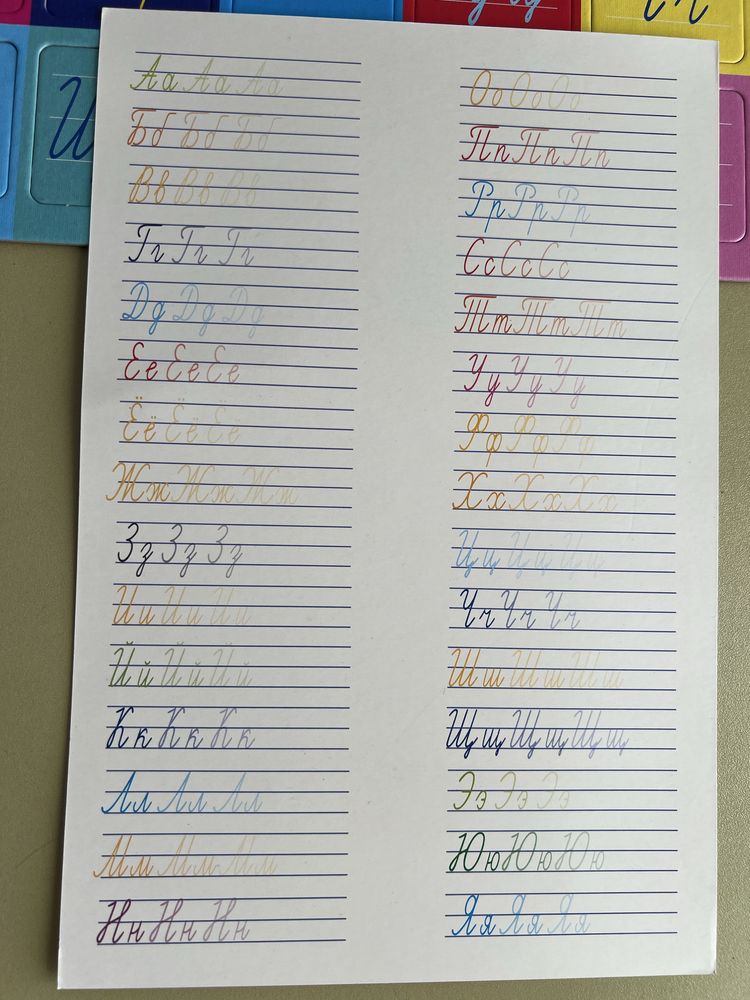 Аа Аа Аа
Бб Бб Бб
Вв Вв Вв
Гг Гг Гг
Дд Дд Дд
Ее Ее Ее
Ёё Ёё Ёё
Жж Жж Жж
Зз Зз Зз
Ии Ии Ии
Йй Йй Йй
Кк Кк Кк
Лл Лл Лл
Мм Мм Мм
Нн Нн Нн
Оо Оо Оо
Пп Пп Пп
Рр Рр Рр
Сс Сс Сс
Тт Тт Тт
Уу Уу Уу
Фф Фф Фф
Хх Хх Хх
Цц Цц Цц
Чч Чч Чч
Шш Шш Шш
Щщ Щщ Щщ
Ээ Ээ Ээ
Юю Юю Юю
Яя Яя Яя